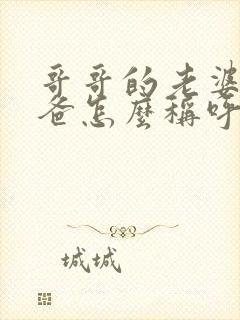 哥哥的老婆
爸怎麼稱呼
城城